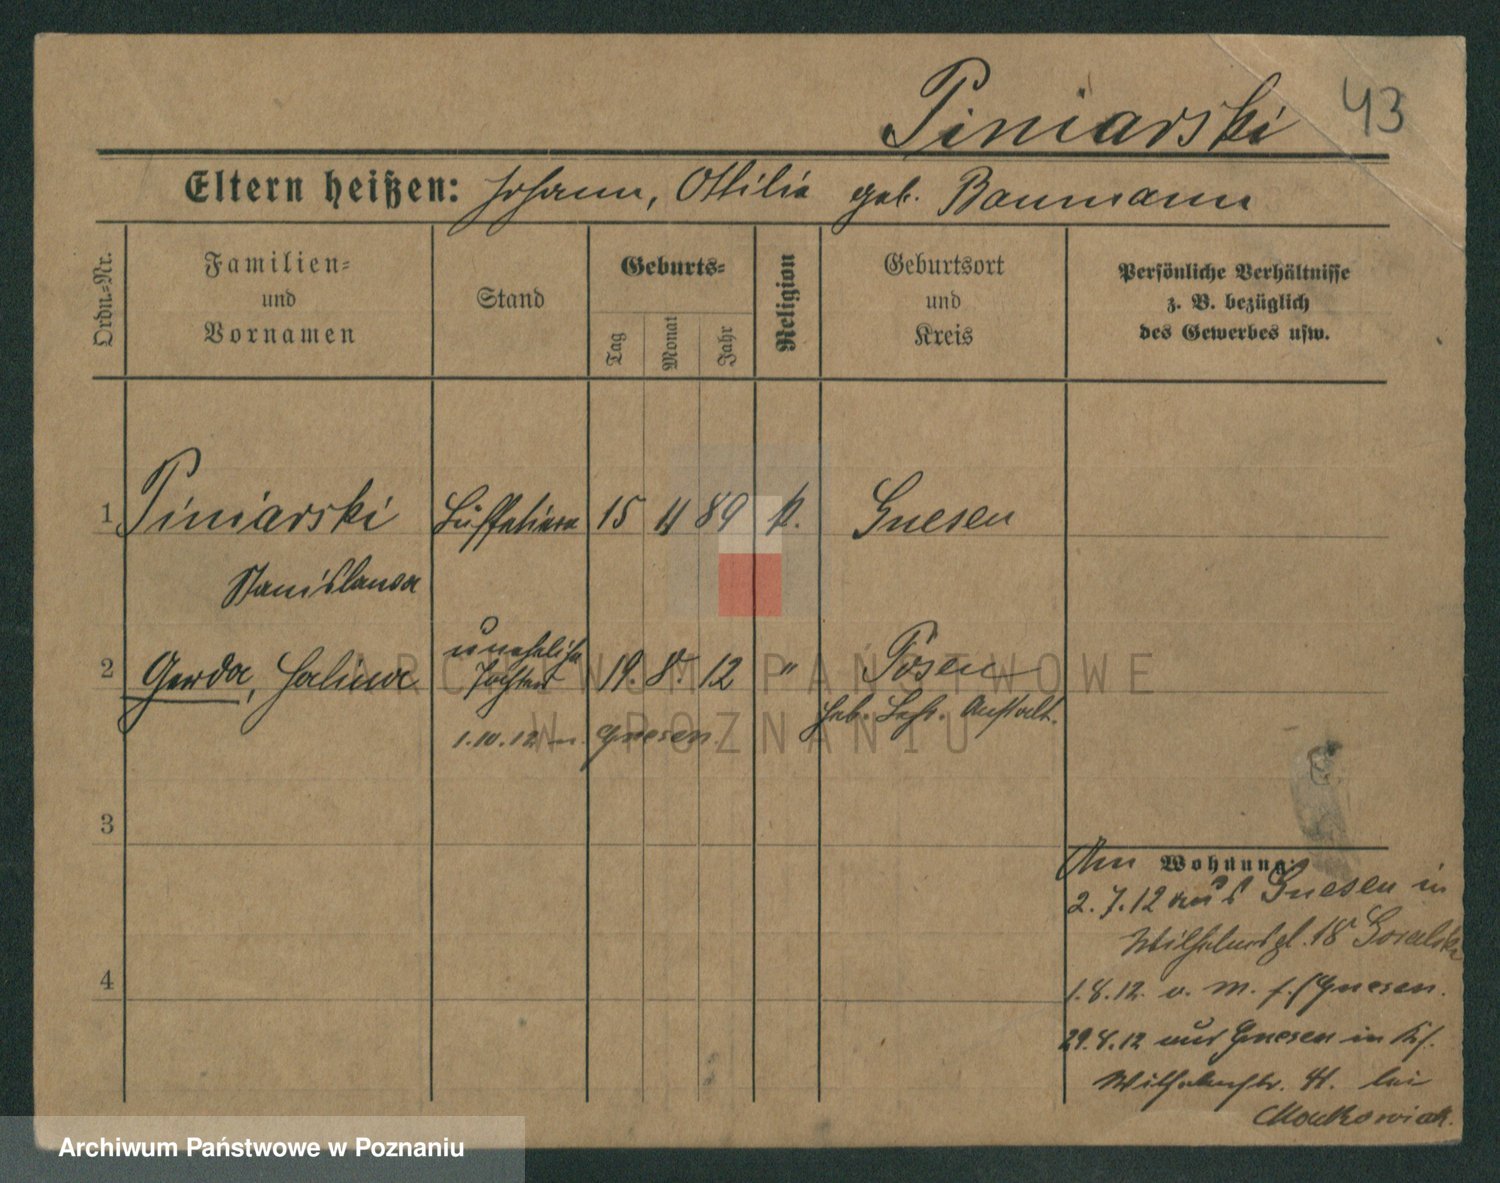 Piniarski 43
Eltern heißen: Johann, Ottilie geb. Baumann
Ordn.-Nr.
Familien-
und
Vornamen
Stand
Geburts-
Tag
Monat
Jahr
Religion
Geburtsort
und
Kreis
Persönliche Verhältnisse
z. B. bezüglich
des Gewerbes usw.
1 Piniarski Büffetiere 15 4 89 k. Gnesen
Stanislawa
2 Gerda, Halina uneheliche Tochter 19. 8. 12 " Posen
Heb. Lehr. Anstalt.
1.10.12 n. Gnesen
3
4
Wohnung:
Am
2.7.12 aus Gnesen in
Wilhelmspl. 18
1.8.12. v. M. f. Gnesen.
29.8.12 aus Gnesen in
Wilhelmstr. bei
ARCHIWUM PAŃSTWOWE
W POZNANIU
Archiwum Państwowe w Poznaniu